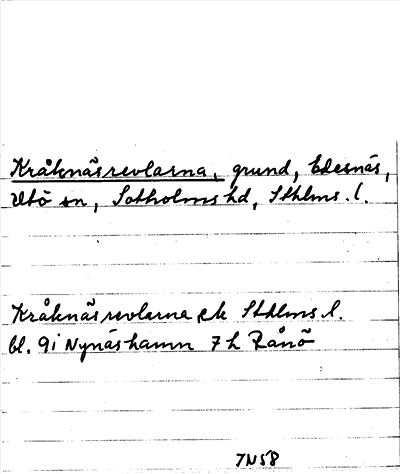 Kråknäsrevlarna, grund, Edesnäs,
Utö sn, Sotholms hd, Sthlms. l.
Kråknäsrevlarna ek Sthlms l.
bl. 9i Nynäshamn 7h Rånö
7N58